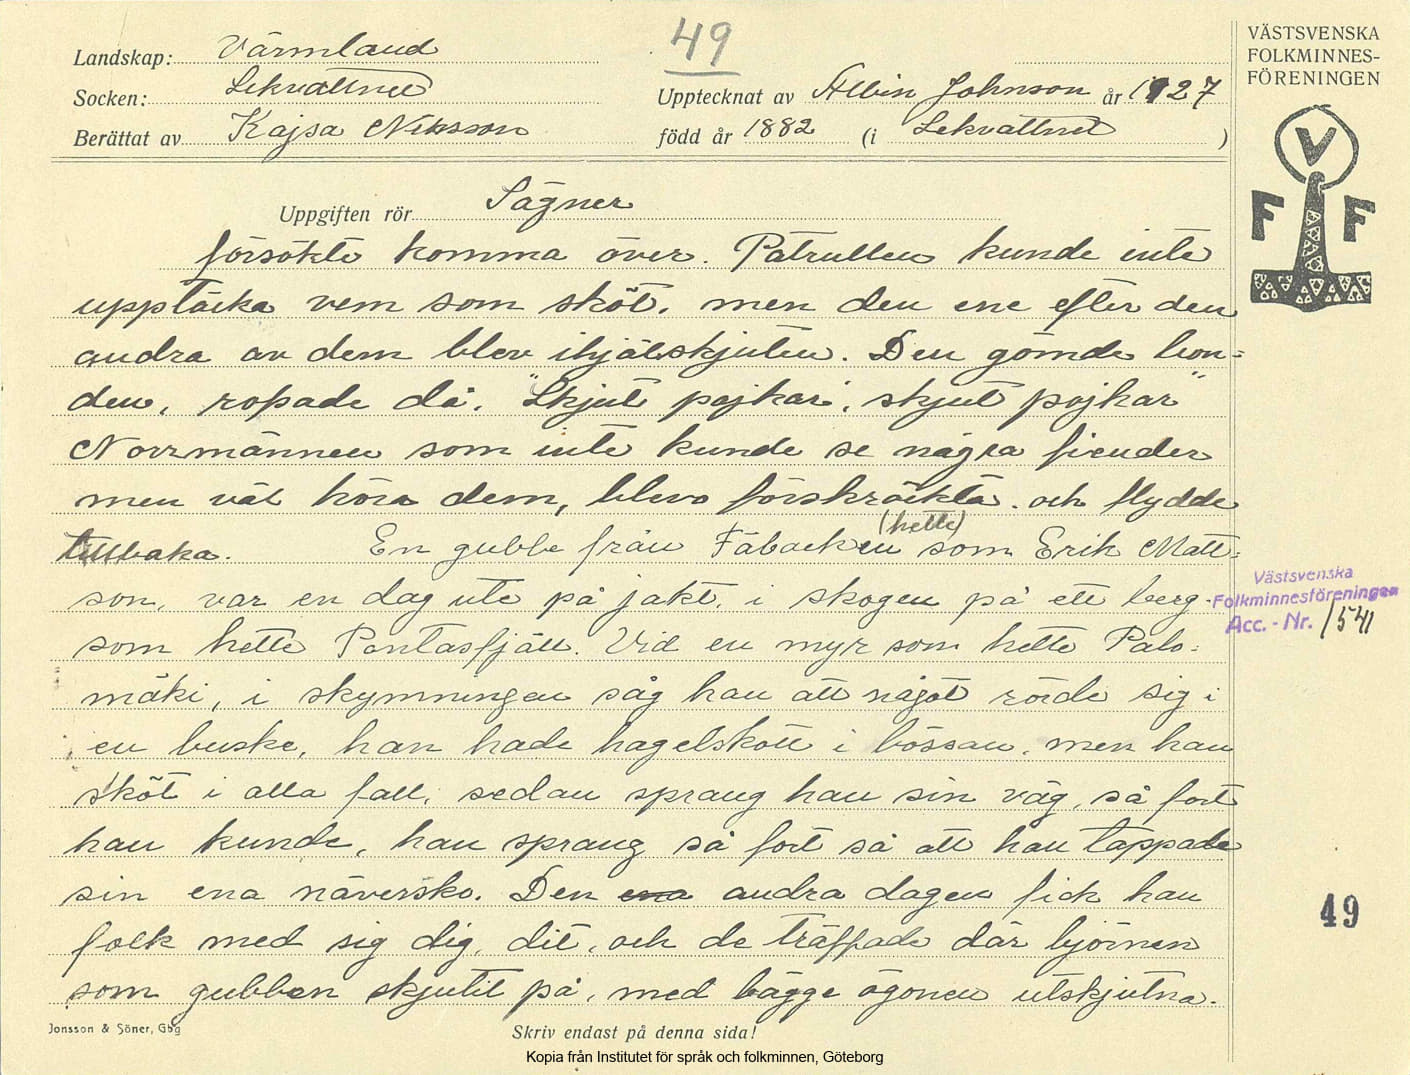 49
Landskap: Värmland
Socken: Lekvattnet
Upptecknat av Albin Johnson år 1927
Berättat av Kajsa Nilsson född år 1882 (i Lekvattnet )
VÄSTSVENSKA
FOLKMINNES-
FÖRENINGEN
V
F F
Uppgiften rör Sägner
försökte komma över. Patrullen kunde inte
upptäcka vem som sköt, men den ene efter den
andra av dem blev ihjälskjuten. Den gömde bon=
den, ropade då, "Skjut pojkar, skjut pojkar"
Norrmännen som inte kunde se några fiender
men väl höra dem, blevo förskräckta och flydde
tillbaka. En gubbe från Fäbacken (hette) som Erik Matt=
son, var en dag ute på jakt, i skogen på ett berg
som hette Pontasfjäll. Vid en myr som hette Palo=
mäki, i skymningen såg han att något rörde sig i
en buske, han hade hagelskott i bössan, men han
sköt i alla fall, sedan sprang han sin väg, så fort
han kunde, han sprang så fort så att han tappade
sin ena näversko. Den ena andra dagen fick han
folk med sig dig, dit, och de träffade där björnen
som gubben skjutit på, med bägge ögonen utskjutna.
Västsvenska
Folkminnesföreningen
Acc. - Nr. 1541
49
Jonsson & Söner, Gbg
Skriv endast på denna sida!
Kopia från Institutet för språk och folkminnen, Göteborg